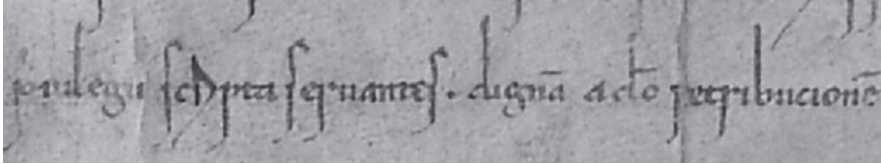 privilegii scripta servantes. dignā a dō retribucionē